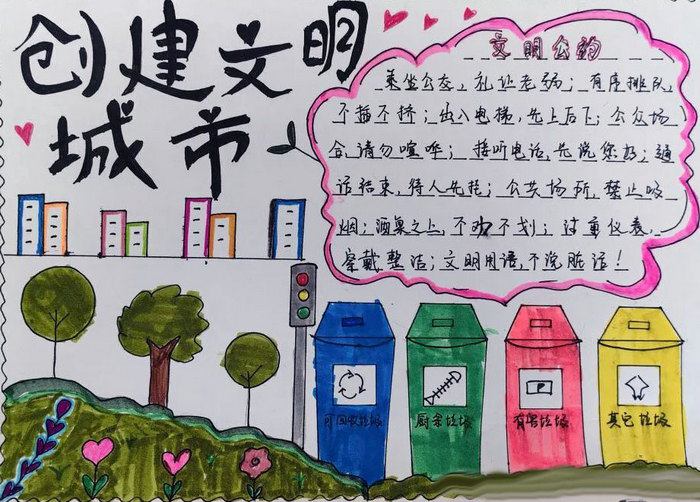 创建文明
城市
文明公约
乘坐公交,礼让老弱;有序排队,
不插不挤;出入电梯,先上后下;公众场
合,请勿喧哗;接听电话,先说您好;通
话结束,待人先挂;公共场所,禁止吸
烟;酒桌之上,不劝不划;注重仪表,
穿戴整洁;文明用语,不说脏话!
可回收垃圾
厨余垃圾
有害垃圾
其它垃圾